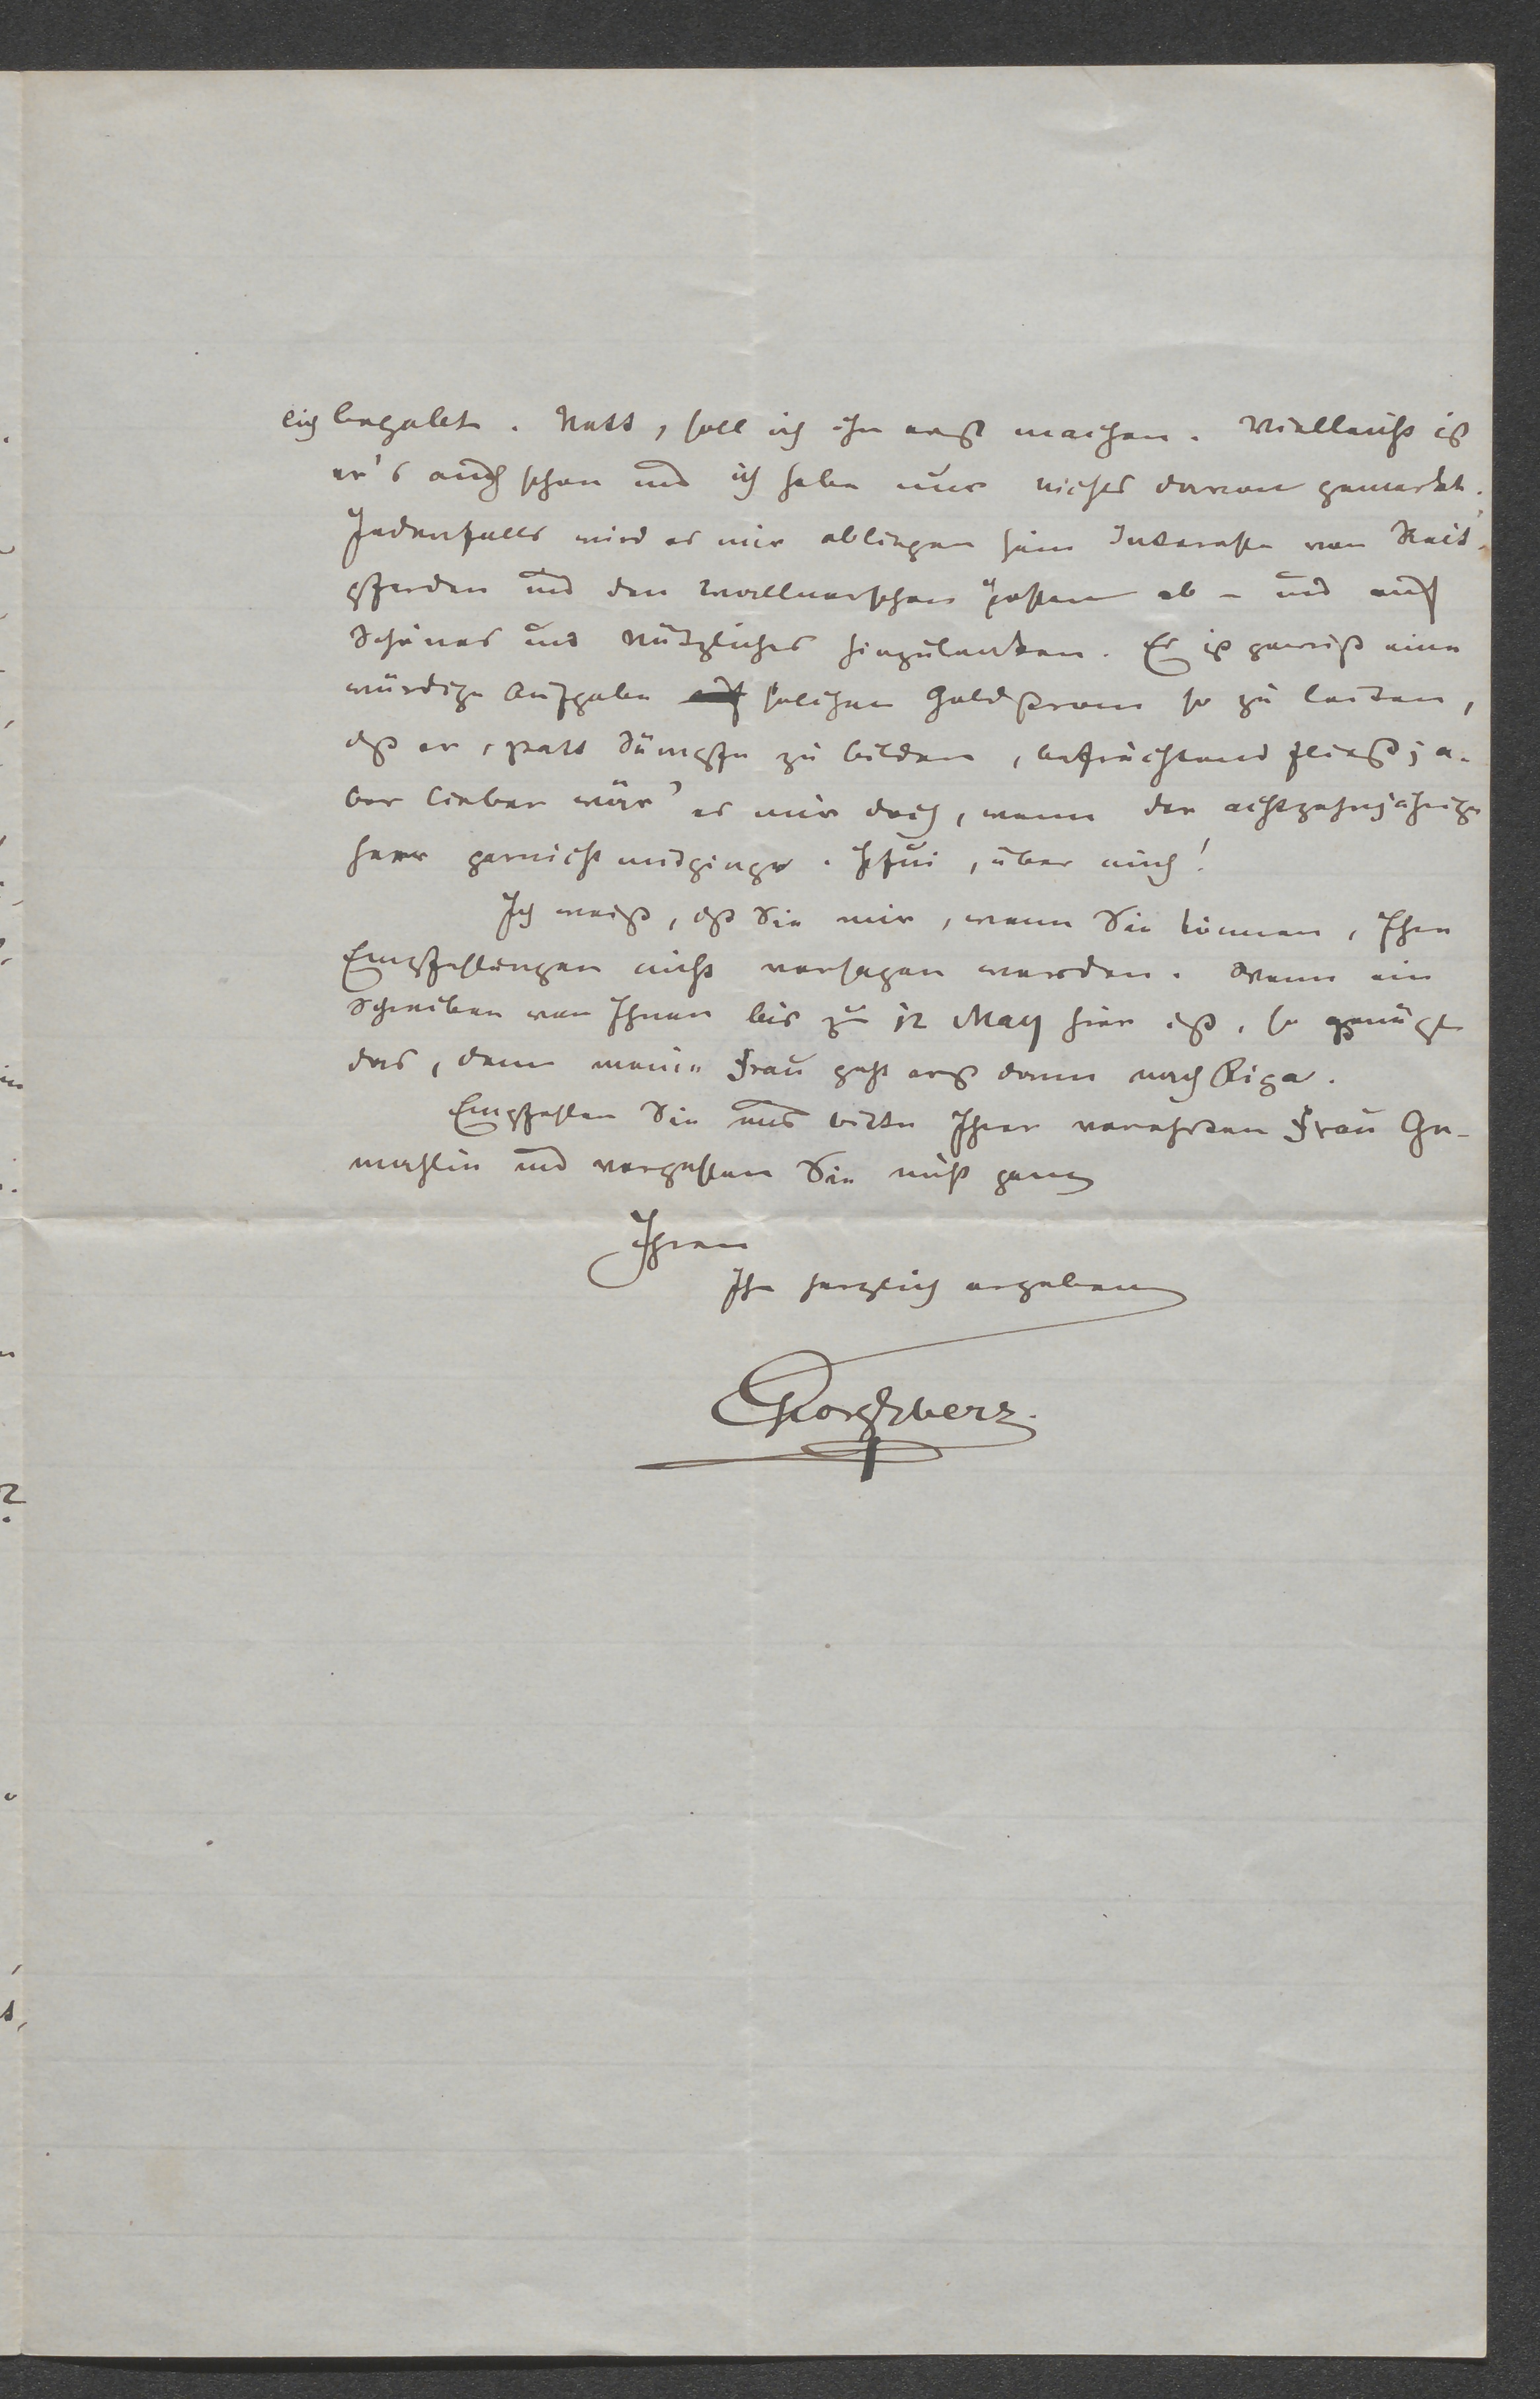 lich begabt. Nett, soll ich ihn erst machen. Vielleicht ist
er's auch schon und ich habe nur nichts davon gemerkt.
Jedenfalls wird es mir obliegen sein Interesse von Reit-
pferden und den Wallnerschen Possen ab- und auf
Schönes und Nützliches hinzulenken. Es ist gewiß eine
würdige Aufgabe solchen Goldstrom so zu leiten,
dß er, statt Sümpfe zu bilden, befruchtend fließt; a-
ber lieber wär' es mir doch, wenn der achtzehnjährige
Herr garnicht mitginge. Pfui, über mich!
Ich weiß, dß Sie mir, wenn Sie können, Ihre
Empfehlungen nicht versagen werden. Wenn ein
Schreiben von Ihnen bis zum 12 May hier ist, so genügt
das, denn meine Frau geht erst dann nach Riga.
Empfehlen Sie uns bitte Ihrer verehrten Frau Ge-
mahlin und vergessen Sie nicht ganz
Ihren
Ihn herzlich ergeben
GeorgEbers.